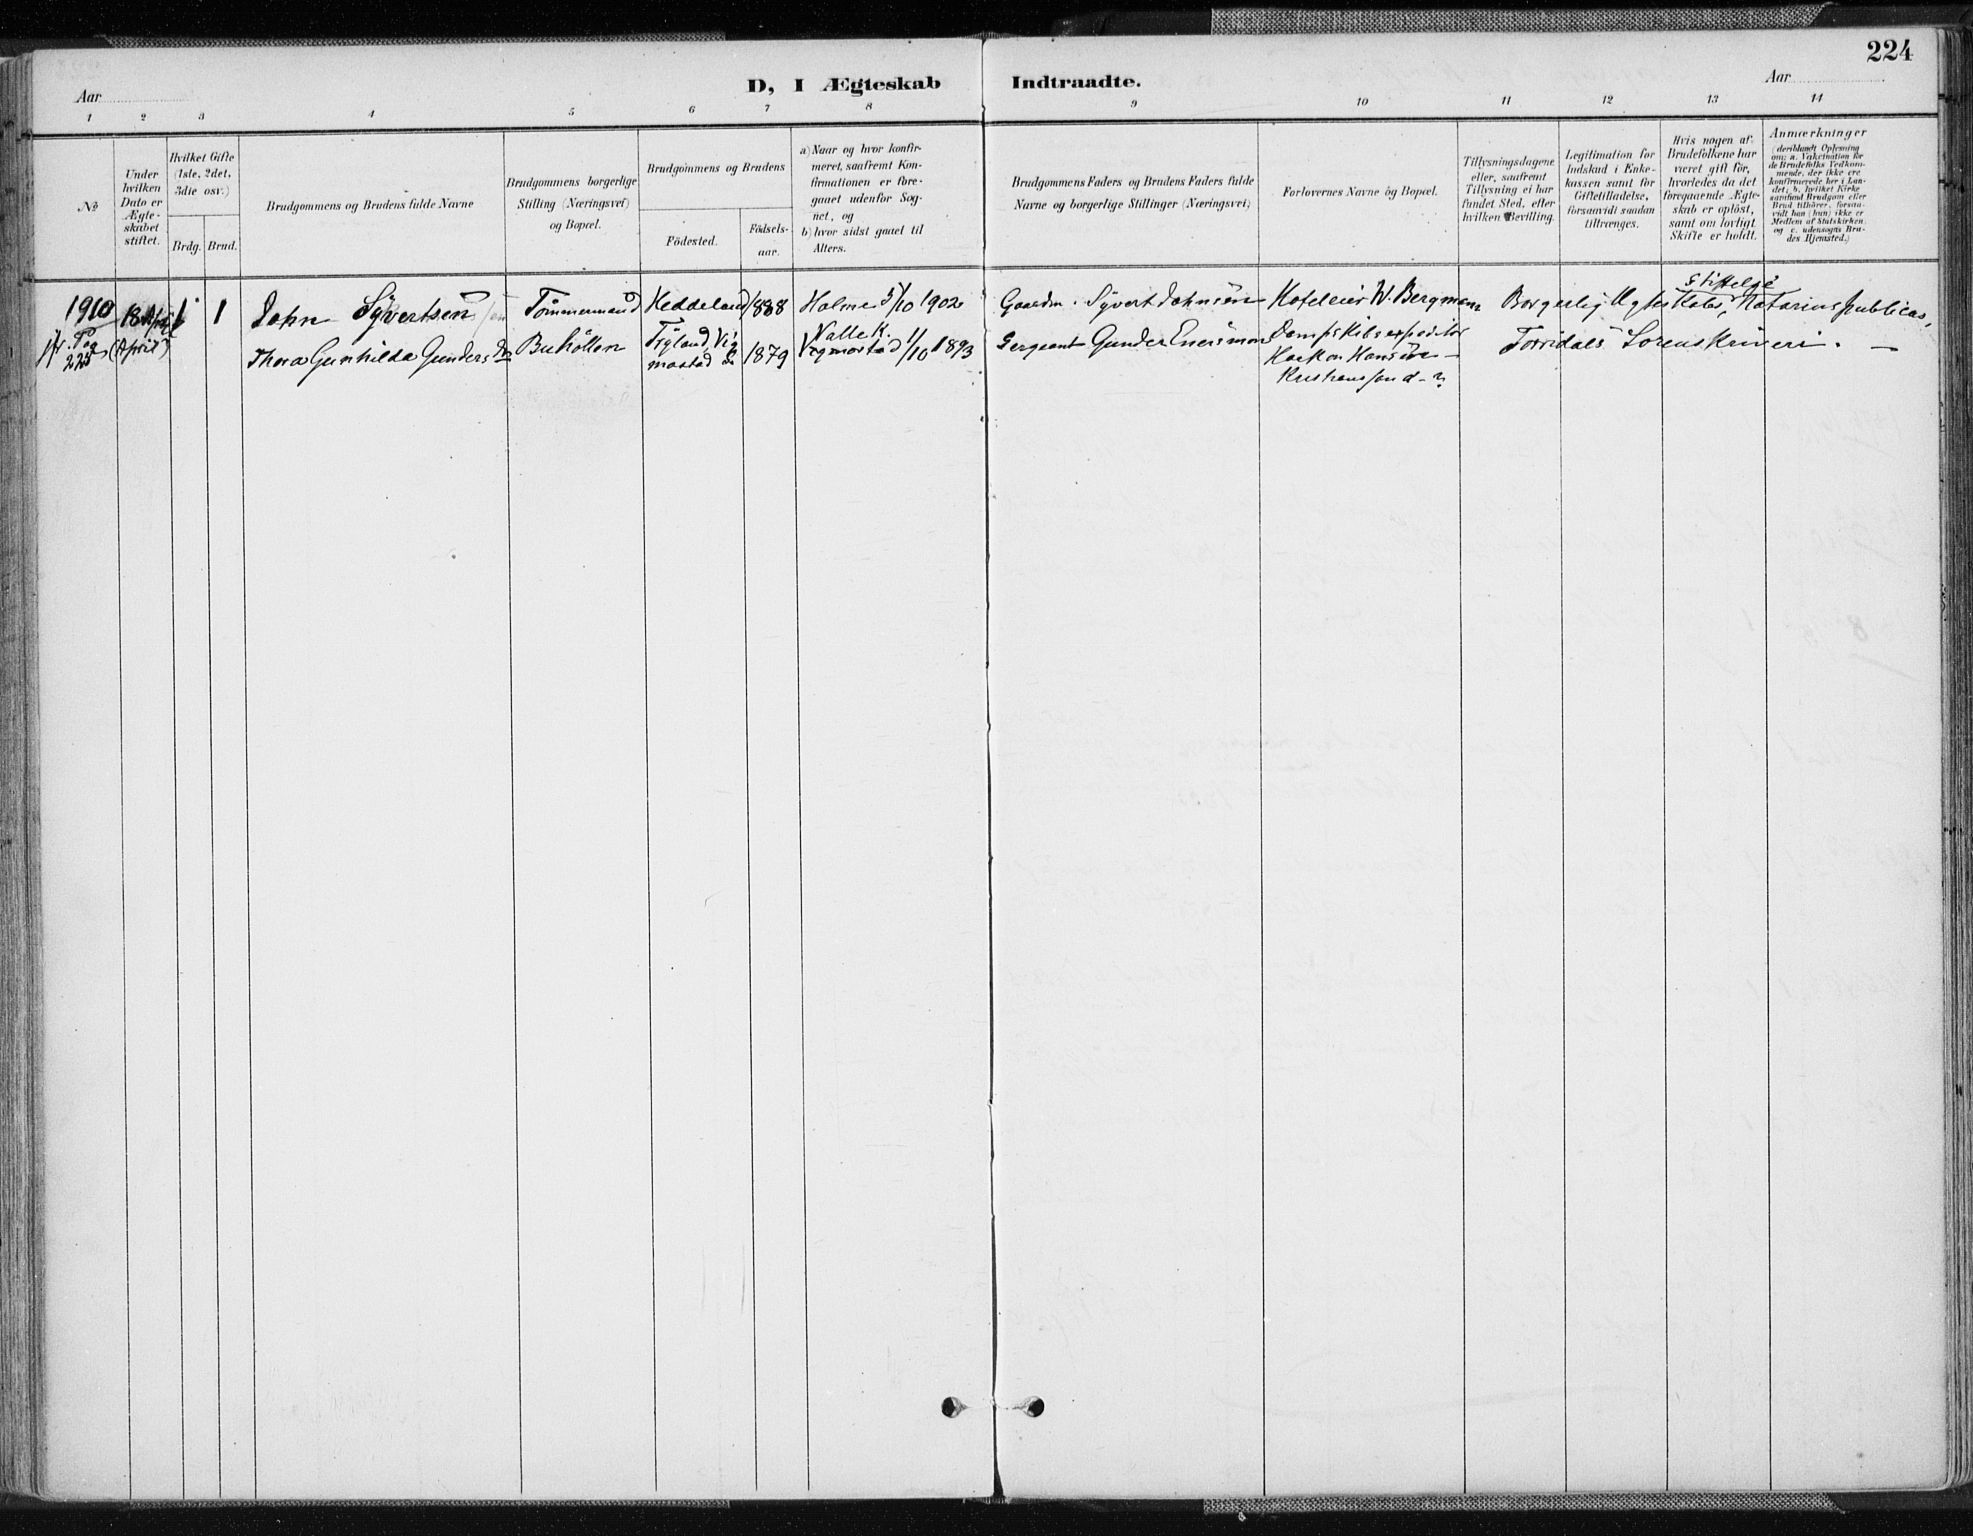 224
D, I Ægteskab Indtraadte.
Aar
Aar
1 2 3 4 5 6 7 8 9 10 11 12 13 14
№
Under
hvilken
Dato er
Ægte-
skabet
stiftet.
Hvilket Gifte
(1ste, 2det,
3die osv.)
Brdg.
Brud.
Brudgommens og Brudens fulde Navne
Brudgommens borgerlige
Stilling (Næringsvei)
og Bopæl.
Brudgommens og Brudens
Födested.
Födsels-
aar.
a) Naar og hvor konfir-
meret, saafremt Kon-
firmationen er fore-
gaaet udenfor Sog-
net, og
b) hvor sidst gaaet til
Alters.
Brudgommens Faders og Brudens Faders fulde
Navne og borgerlige Stillinger (Næringsvei)
Forlovernes Navne og Bopæl.
Tillysningsdagene
eller, saafremt
Tillysning ei har
fundet Sted, efter
hvilken Bevilling.
Legitimation for
Indskud i Enke-
kassen samt for
Giftetilladelse,
forsaavidt saadan
tiltrænges.
Hvis nogen af
Brudefolkene har
været gift før,
hvorledes da det
foregaaende Ægte-
skab er opløst,
samt om lovligt
Skifte er holdt.
Anmærkninger
(deriblandt Oplysning
om: a. Vakcination for
de Brudefolks Vedkom-
mende, der ikke ere
konfirmerede her i Lan-
det; b. hvilket Kirke
samfund Brudgom eller
Brud tilhører, forsaa-
vidt han (hun) ikke er
Medlem af Statskirken;
og c. udensogns Bru-
des Hjemsted.)
1910
Pag
225
18
(April)
1 1
John Syvertsen
Thora Gunhilde Gunders
Tömmermand
Buhöllen
Heddeland 1888
Tryland, Vig
mostad 1879
Holme 5/10 1902
Valle K.
Vigmostad 1/10 1893
Gaardm. Syvert Johnsen
Sergeant Gunder
Hoteleier W. Bergmann
Dampskibsexpeditör
Haakon Hansen
Kristianssand
Stiftelse
Borgerlig Ægteskabs, Notarius publicus,
Torridals Sorenskriveri.